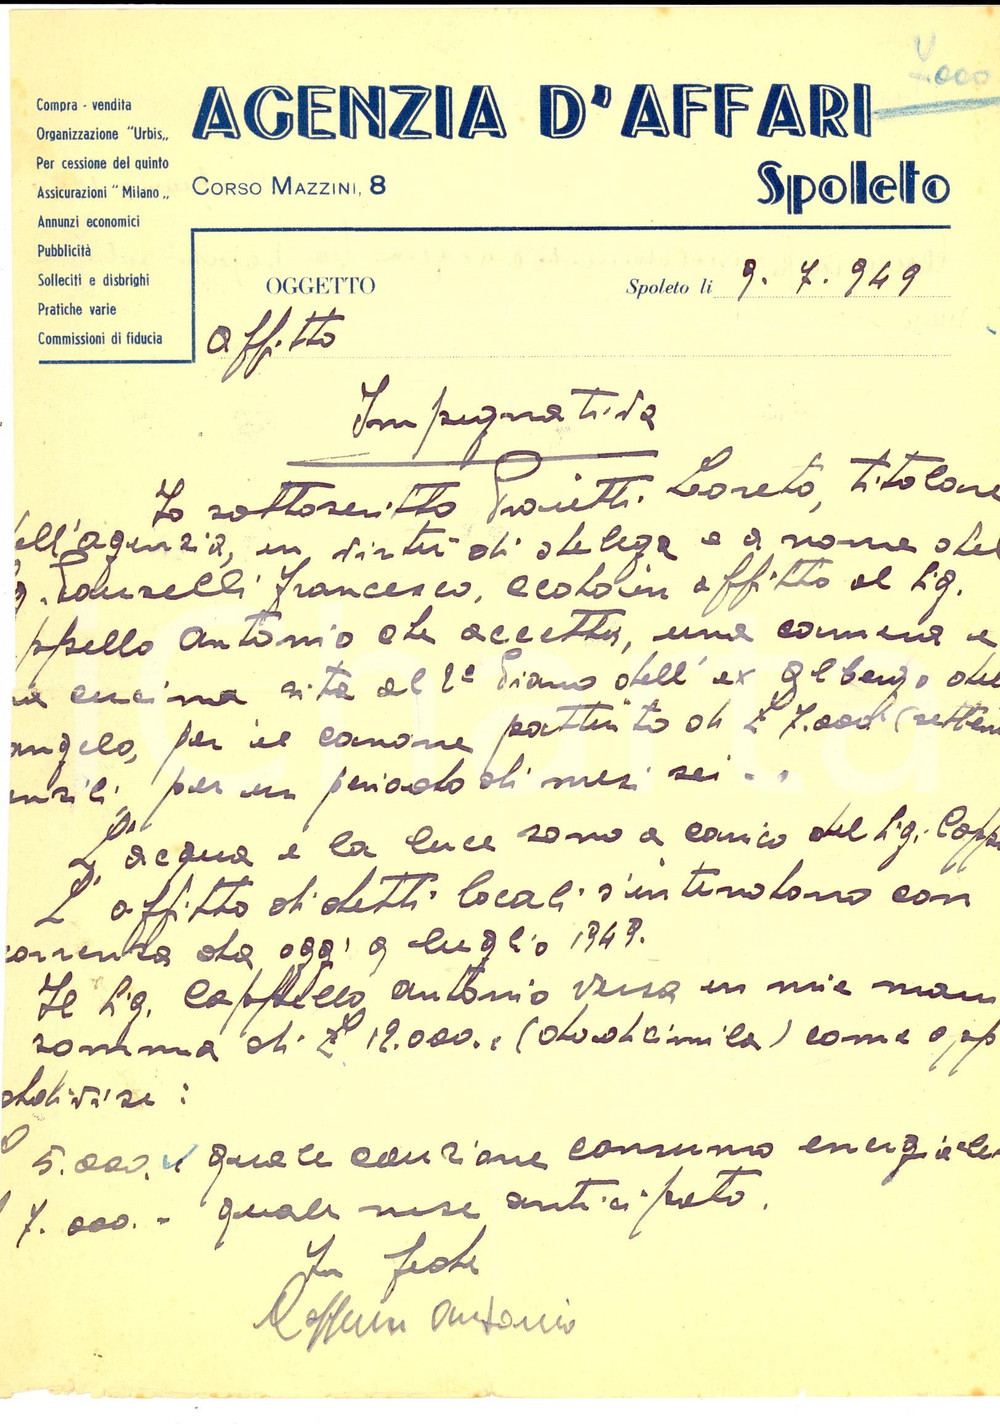 000
Compra - vendita
Organizzazione "Urbis„
Per cessione del quinto
Assicurazioni " Milano „
Annunzi economici
Pubblicità
Solleciti e disbrighi
Pratiche varie
Commissioni di fiducia
AGENZIA D'AFFARI
Spoleto
CORSO MAZZINI, 8
OGGETTO
Spoleto li 9. 7. 949
affitto
Impegnativa
Io sottoscritto Proietti Loreto, titolare
dell'agenzia, in virtù di delega e a nome del
Francesco, cedo in affitto al Sig.
ppello Antonio che accetta, una camera e
na cucina sita al 2° Piano dell'ex albergo del
angelo, per il canone pattuito di £ 7.000 (sette
ensili, per un periodo di mesi sei - . .
L'acqua e la luce sono a carico del Sig. Capp
L'affitto di detti locali s'intendono con
correnza da oggi 9 luglio 1949.
Il Sig. Cappello Antonio versa in mie man
somma di £ 12.000.. (dodicimila) come app
ddivise :
5.000. quale cauzione consumo energia ele
7.000. - quale mese anticipato.
In fede
Antonio